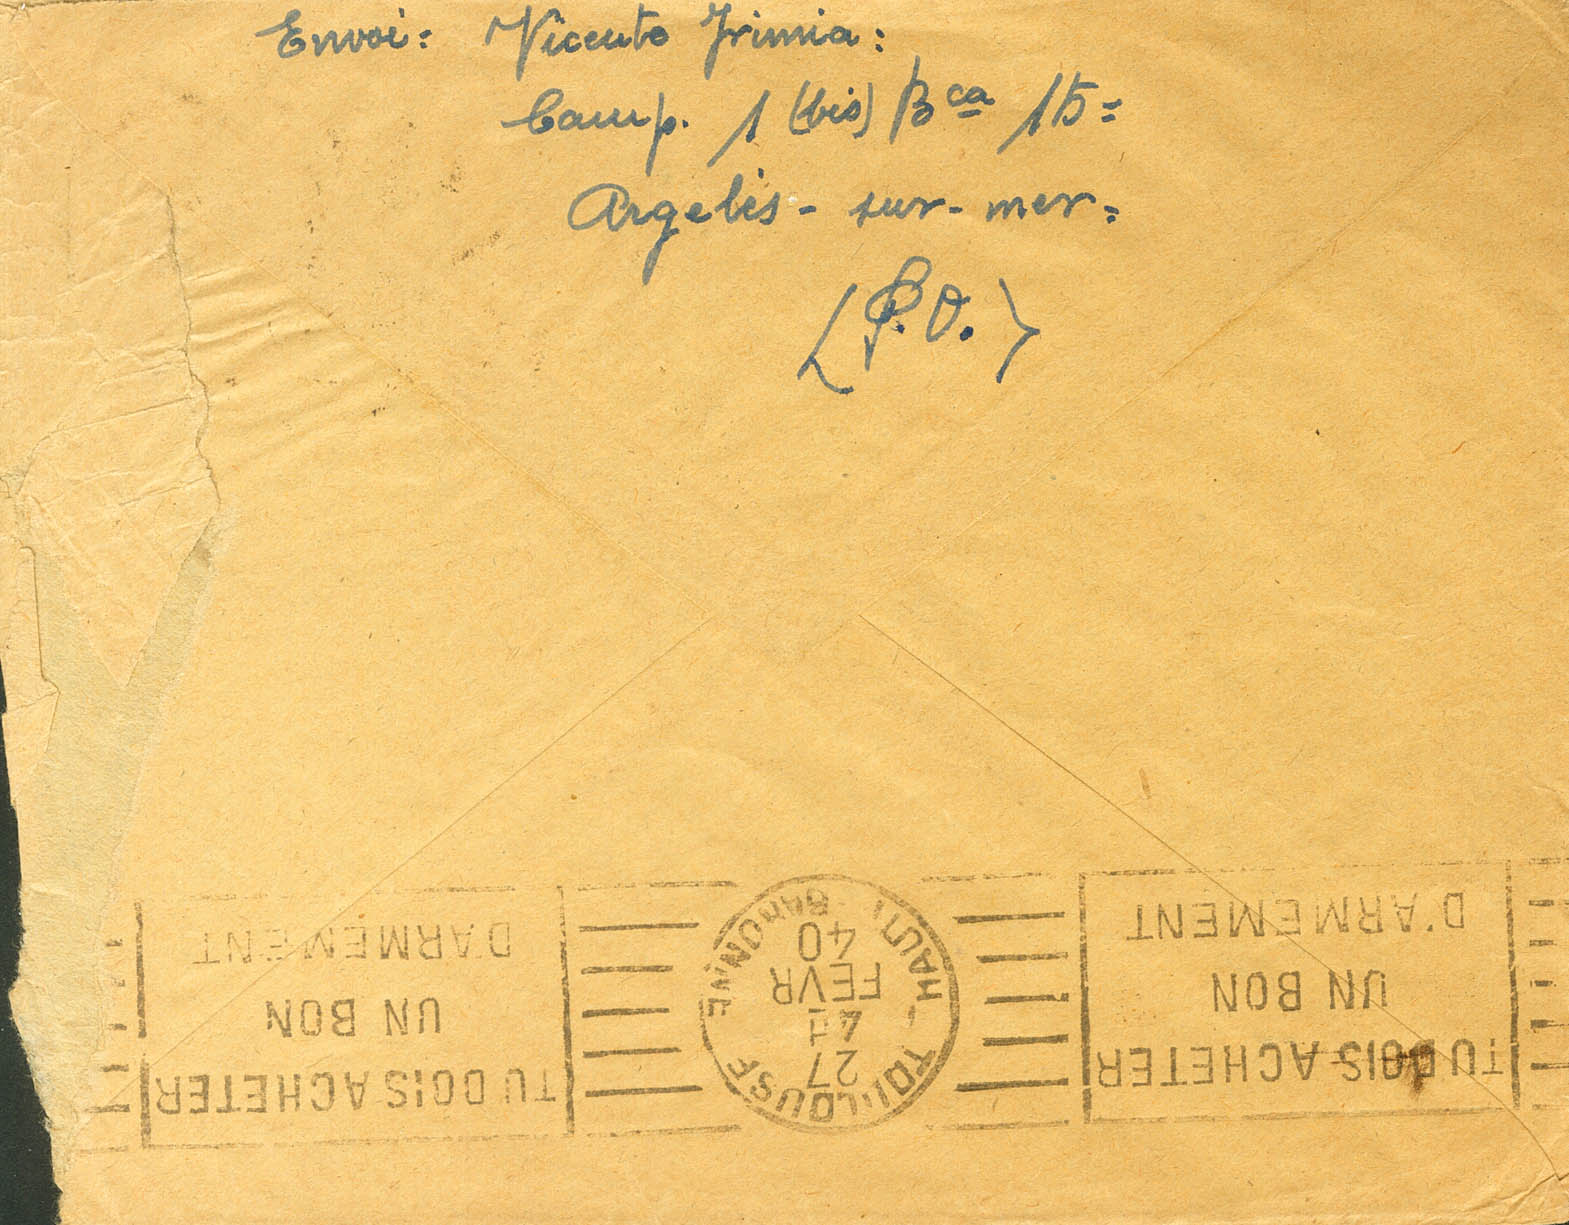 Envoi: Vicente Irimia:
Camp. 1 (bis) Bca 15=
Argelès-sur-mer=
(P.O.)
TU DOIS ACHETER
UN BON
D'ARMEMENT
TOULOUSE
27
FEVR
40
HAUTE-GARONNE
TU DOIS ACHETER
UN BON
D'ARMEMENT